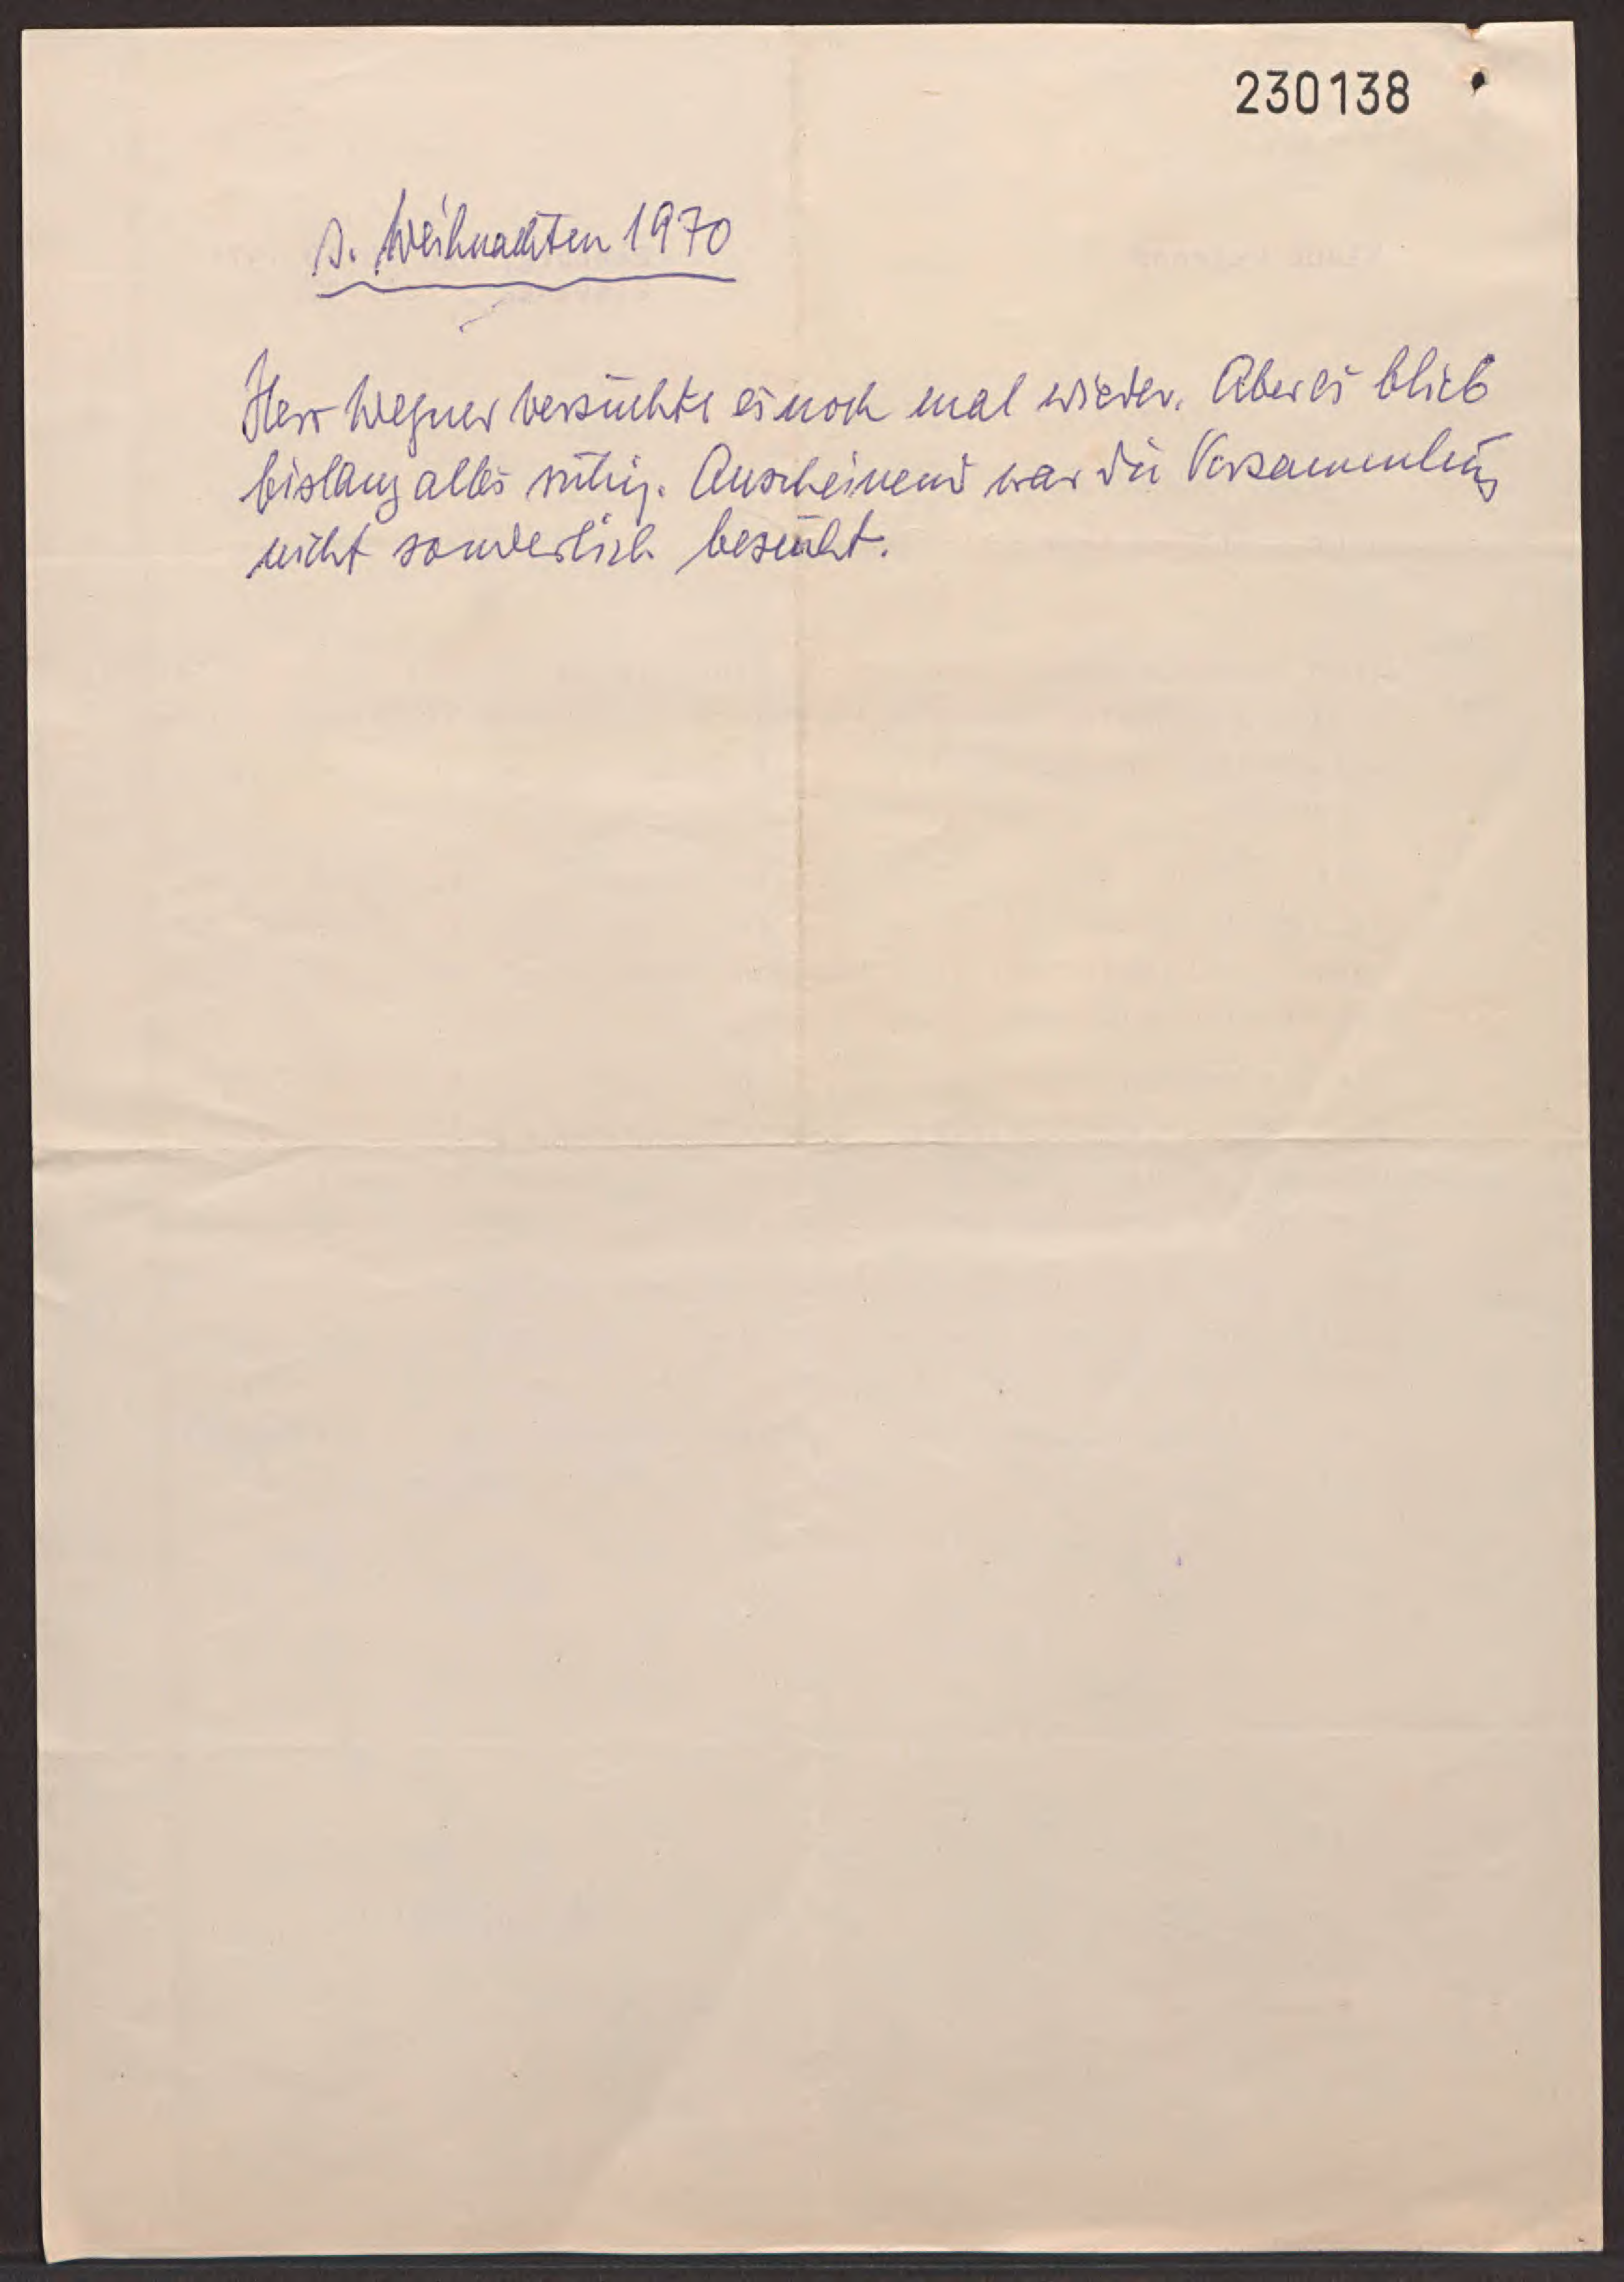 230138
1. Weihnachten 1970
Herr Wegner versuchte es noch mal wieder. Aber es blieb
bislang alles ruhig. Anscheinend war die Versammlung
nicht sonderlich besucht.